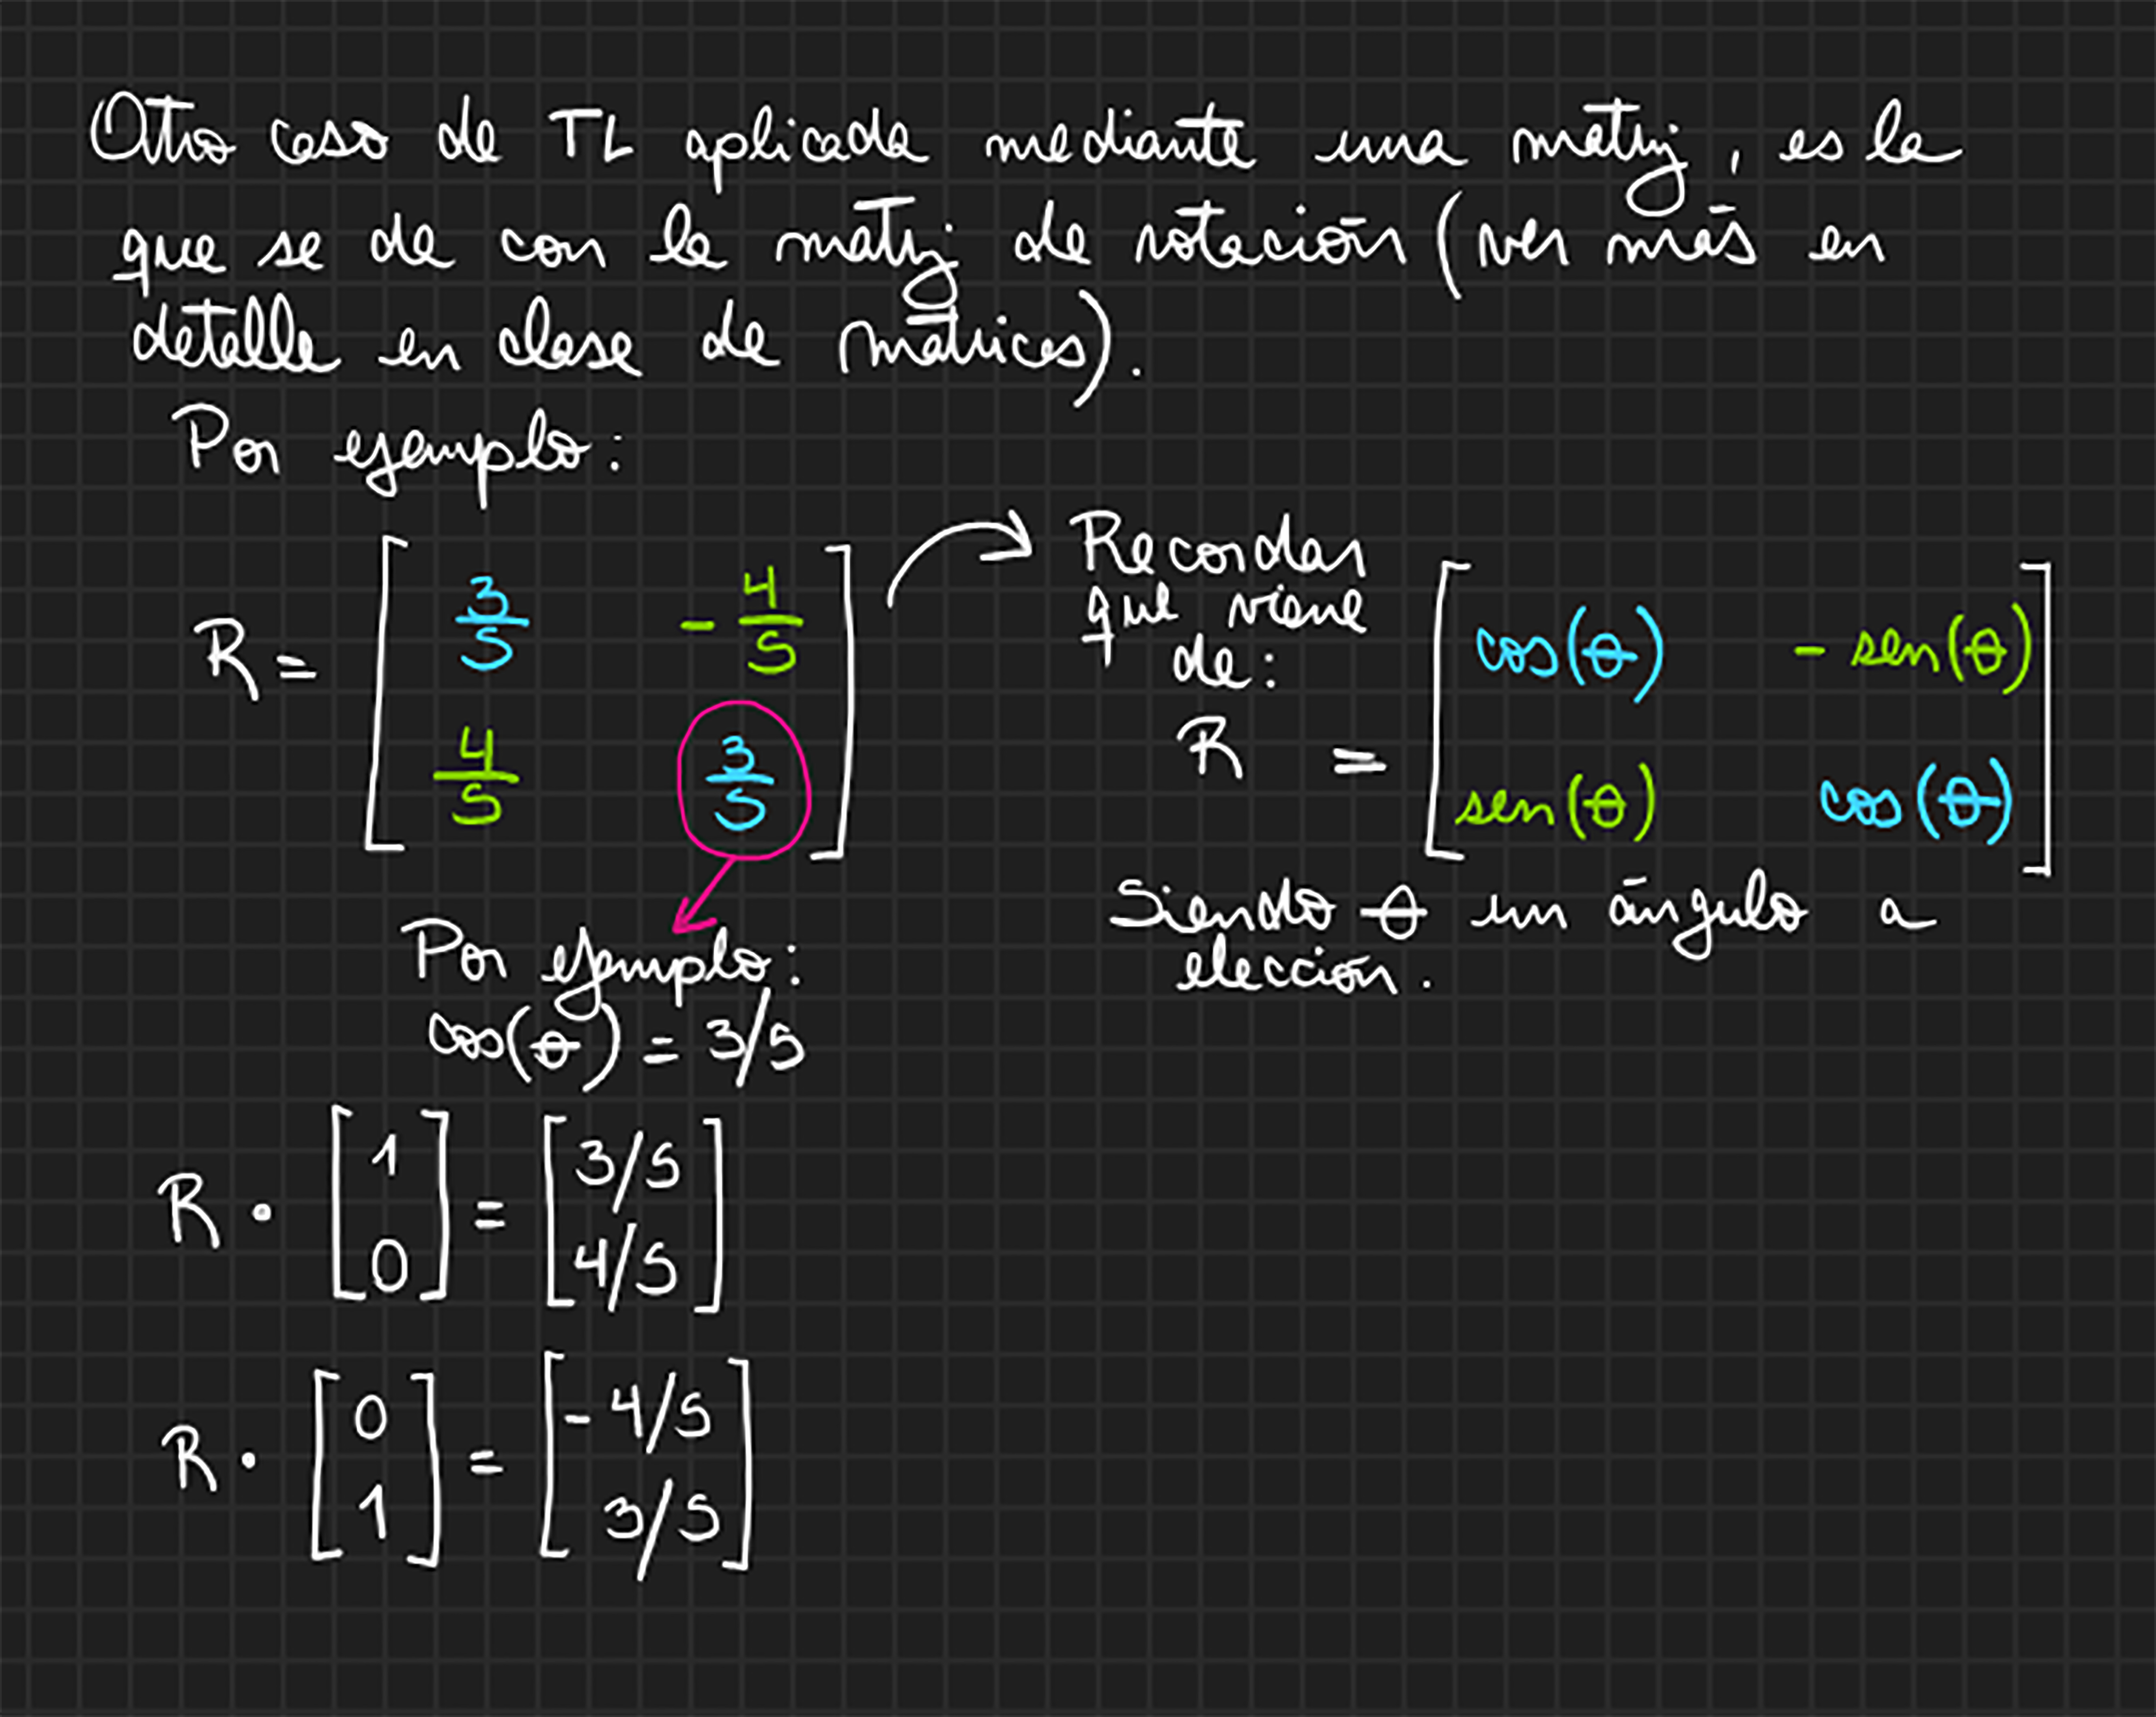 Otro caso de TL aplicada mediante una matriz, es la
que se da con la matriz de rotación (ver más en
detalle en clase de matrices).
Por ejemplo:
R = [ 3/5 - 4/5
4/5 3/5 ]
Recordar
que viene
de:
R = [ cos(θ) - sen(θ)
sen(θ) cos(θ) ]
Siendo θ un ángulo a
elección.
Por ejemplo:
cos(θ) = 3/5
R · [ 1
0 ] = [ 3/5
4/5 ]
R · [ 0
1 ] = [ - 4/5
3/5 ]